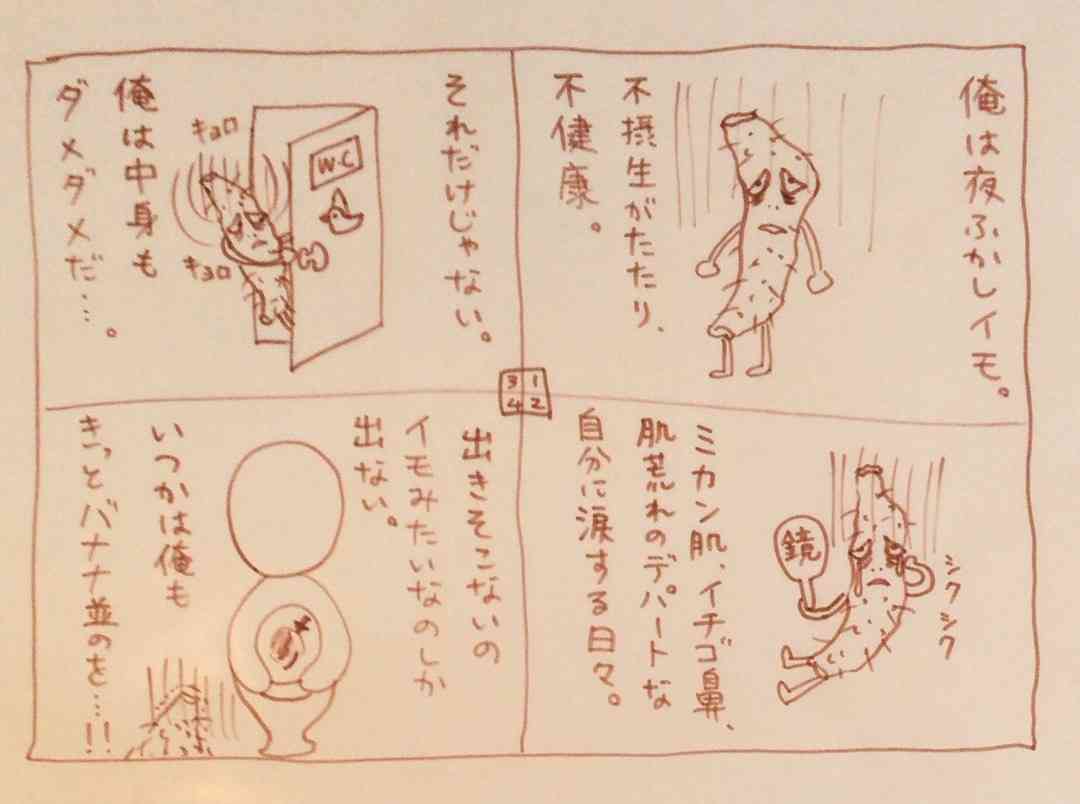 俺は夜ふかしイモ。
不摂生がたたり、
不健康。
ミカン肌、イチゴ鼻、
肌荒れのデパートな
自分に涙する日々。
鏡
シクシク
それだけじゃない。
W・C
キョロ
キョロ
俺は中身も
ダメダメだ…。
出きそこないの
イモみたいなのしか
出ない。
いつかは俺も
きっとバナナ並のを…!!
3 1
4 2